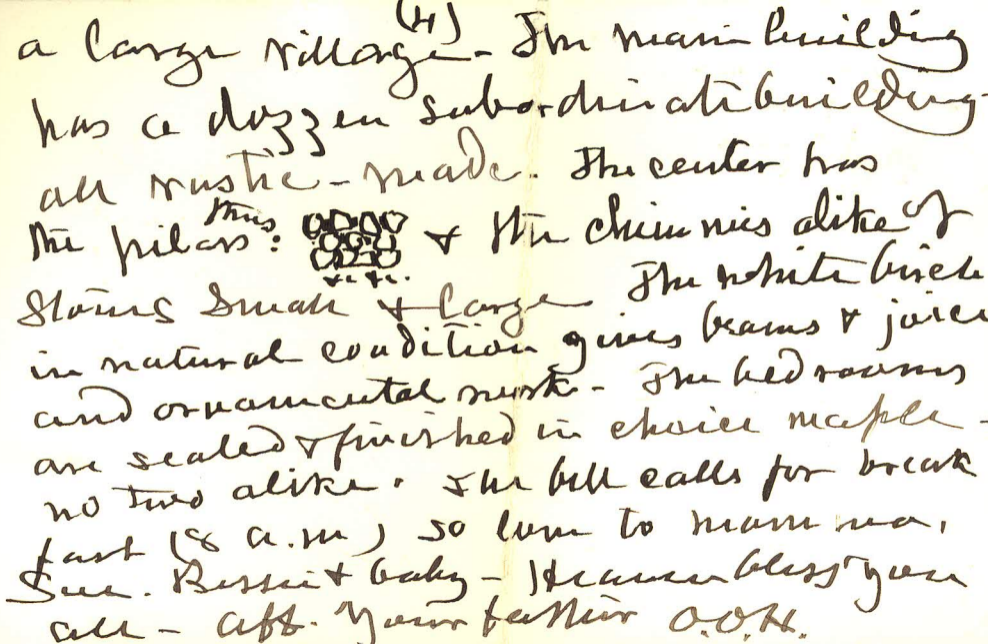 (4)
a large village - The main building
has a dozzen subordinate building
all rustic - made. The center has
the pilars thus: & the chimnies alike of
stones small & large The white birch
in natural condition gives beams & joice
and ornamental work - The bedrooms
are sealed & finished in choice maple -
no two alike. The bell calls for break
fast (8 a.m) so love to mamma,
Bessie & baby - Heaven bless you
all - aff. Your father O.O.H.